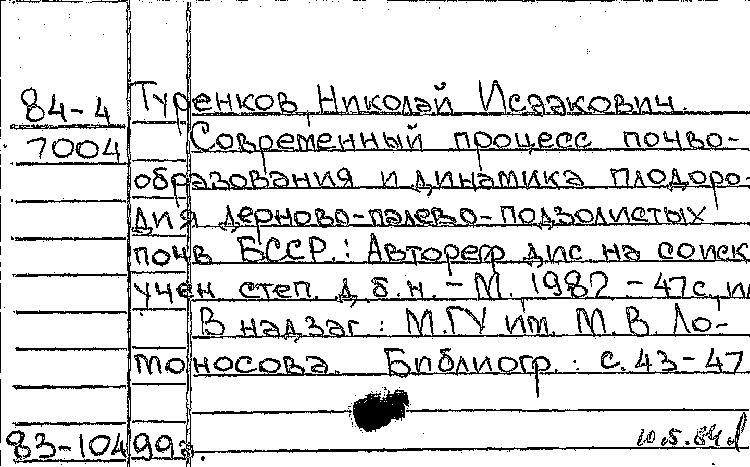 84-4 Туренков, Николай Исаакович.
7004 Современный процесс почво-
образования и динамика плодоро-
дия дерново-палево-подзолистых
почв БССР.: Автореф дис на соиск
учен степ. д. б. н. - М. 1982 - 47с, ил
В надзаг: МГУ им. М. В. Ло-
моносова. Библиогр.: с. 43-47
83-10499а.
10.5.84